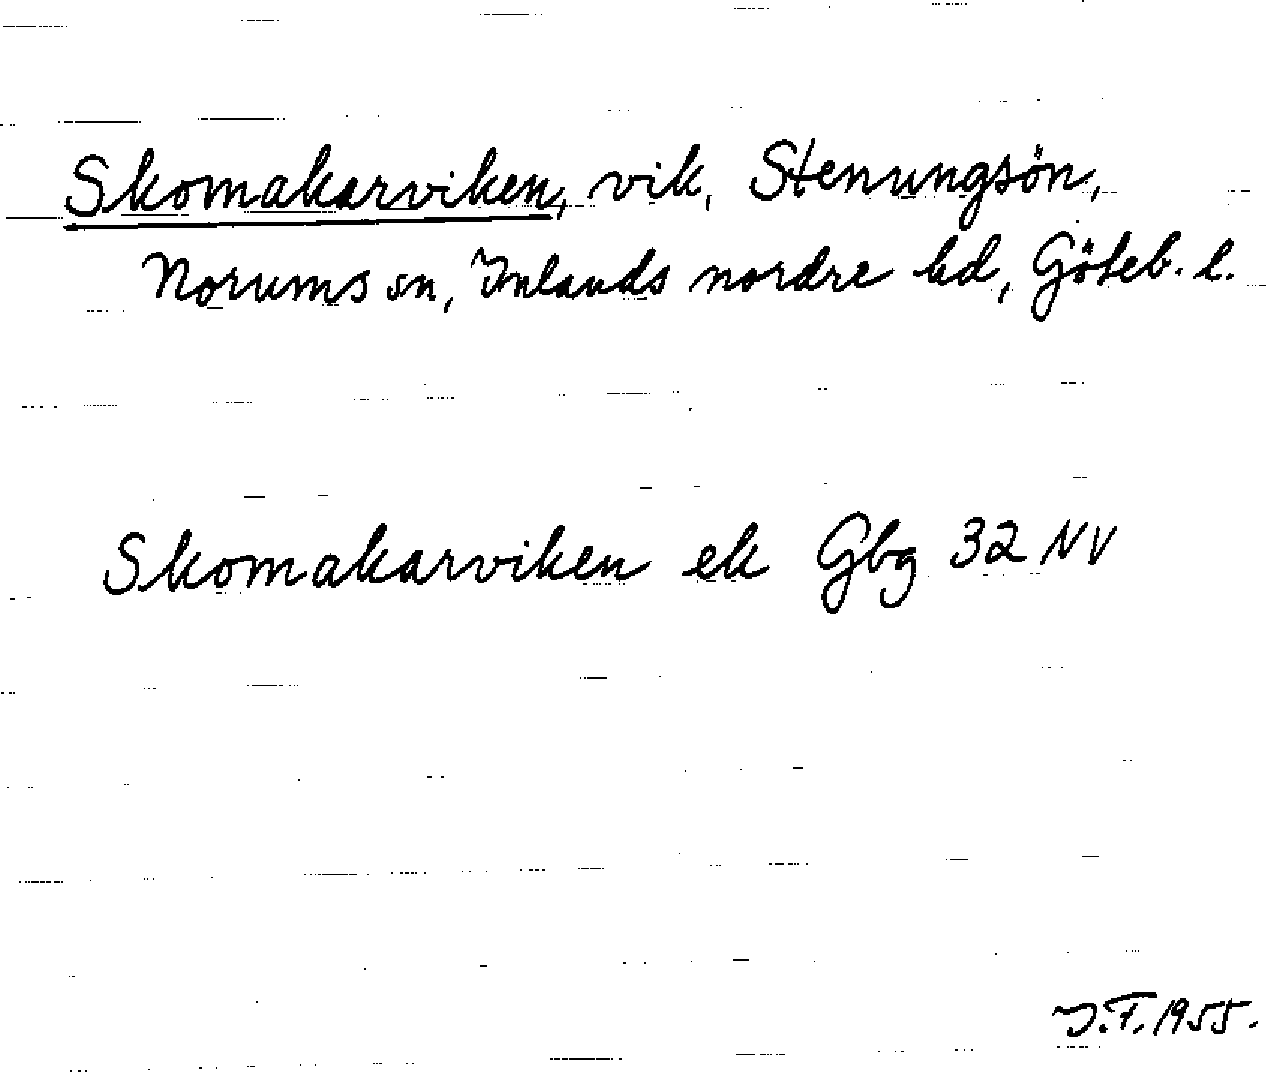 Skomakarviken, vik, Stenungsön,
Norums sn, Inlands nordre hd, Göteb. l.
Skomakarviken ek Gbg 32 NV
J.F. 1955.